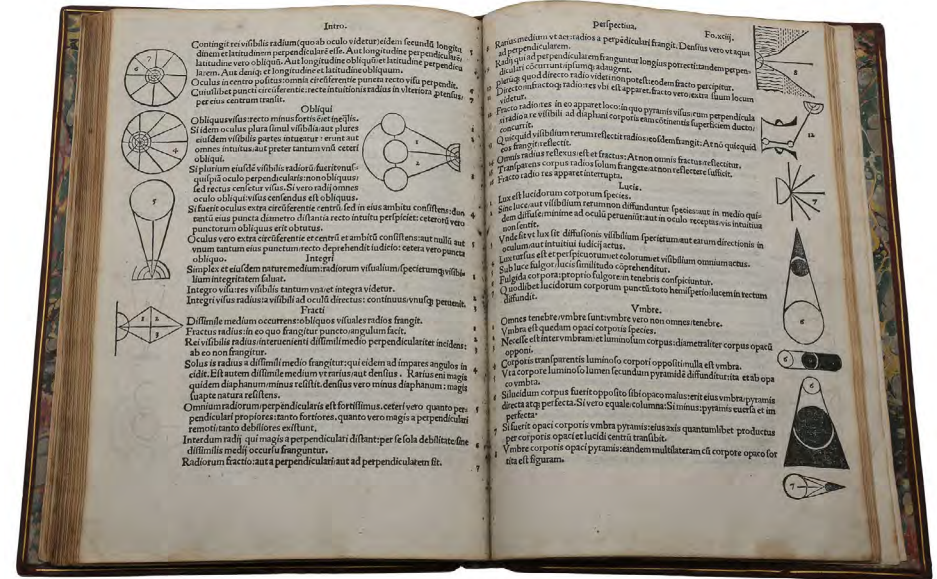 Intro.
Contingit rei visibilis radium(quo ab oculo videtur)eidem secundũ longitu
dinem et latitudinem perpendicularẽ esse. Aut longitudine perpendicularẽ:
latitudine vero obliquũ. Aut longitudine obliquũ:et latitudine perpendicu
larem. Aut deniq₃ et longitudine et latitudine obliquum.
Oculus in centro positus:omnia circũferentie puncta recto visu perpendit.
Cuiuslibet puncti circũferentie:recte intuitionis radius in vlteriora ptensus:
per eius centrum transit.
Obliqui
Obliquus visus:recto minus fortis est et ineqlis.
Si idem oculus plura simul visibilia:aut plures
eiusdem visibilis partes intueatur: erunt aut
omnes intuitus:aut preter tantum vnũ ceteri
obliqui.
Si plurium eiusdẽ visibilis radiorũ fuerit vnus
quispiã oculo perpendicularis:non obliquus:
sed rectus censetur visus. Si vero radij omnes
oculo obliqui:visus censendus est obliquus.
Si fuerit oculus extra circũferentie centrũ sed in eius ambitu consistens:duo
tantũ eius puncta diametro distantia recto intuitu perspiciet: ceterorũ vero
punctorum obliquus erit obtutus.
Oculus vero extra circũferentie et centrũ et ambitũ consistens:aut nullũ aut
vnum tantum eius punctum:recto deprehendit iudicio: cetera vero puncta
obliquo.
Integri
Simplex et eiusdem nature medium:radiorum visualium/specierumq₃ visibi
lium integritatem saluat.
Integro visu:res visibilis tantum vna:et integra videtur.
Integri visus radius:a visibili ad oculũ directus: continuus:vnusq₃ peruenit.
Fracti
Dissimile medium occurrens:obliquos visuales radios frangit.
Fractus radius:in eo quo frangitur puncto:angulum facit.
Rei visibilis radius:interuenienti dissimili medio perpendiculariter incidens:
ab eo non frangitur.
Solus is radius a dissimili medio frangitur:qui eidem ad impares angulos in
cidit. Est autem dissimile medium vt rarius:aut densius. Rarius eni magis
quidem diaphanum:minus resistit. densius vero minus diaphanum: magis
suapte natura resistens.
Omnium radiorum/perpendicularis est fortissimus. ceteri vero quanto per-
pendiculari propiores:tanto fortiores. quanto vero magis a perpendiculari
remoti:tanto debiliores existunt.
Interdum radij qui magis a perpendiculari distant:per se sola debilitate:sine
dissimilis medij occursu franguntur.
Radiorum fractio:aut a perpendiculari:aut ad perpendicularem fit.
Perspectiua. Fo.xciij.
Rarius medium vt aer:radios a perpẽdiculari frangit. Densius vero vt aqua:
ad perpendicularem.
Radij qui ad perpendicularem franguntur longius porrecti:tandem perpen-
diculari cõcurrunt:ipsumq₃ adaugent.
Pleruq₃ quod directo radio videri non potest:eodem fracto percipitur.
Directo:infractoq₃ radio:res vbi est apparet. fracto vero:extra suum locum
videtur.
Fracto radio:res in eo apparet loco:in quo pyramis visus:cum perpendicula
ri a radio a re visibili ad diaphani corporis eam cõtinentis superficiem ducto/
concurrit.
Quicquid visibilium rerum reflectit radios:eosdem frangit: At nõ quicquid
eos frangit:reflectit.
Omnis radius reflexus:est et fractus: At non omnis fractus:reflectitur.
Transparens corpus radios solum frangere:at non reflectere sufficit.
Fracto radio res apparet interrupta.
Lucis.
Lux est lucidorum corporum species.
Sine luce:aut visibilium rerum non diffunduntur species:aut in medio qui-
dem diffuse:minime ad oculũ perueniũt:aut in oculo receptas:vis intuitiua
non sentit.
Vnde fit vt lux sit diffusionis visibilium specierum:aut earum directionis in
oculum:aut intuitiui iudicij actus.
Lux rursus est et perspicuorum:et colorum:et visibilium omnium actus.
Sub luce fulgor:lucis similitudo coprehenditur.
Fulgida corpora:proprio fulgore:in tenebris conspiciuntur.
Quodlibet lucidorum corporum punctũ:toto hemisperio:lucem in rectum
diffundit.
Vmbre.
Omnes tenebre:vmbre sunt:vmbre vero non omnes:tenebre.
Vmbra est quedam opaci corporis species.
Necesse est inter vmbram:et luminosum corpus:diametraliter corpus opacũ
opponi.
Corporis transparentis luminoso corpori oppositi:nulla est vmbra.
Vt a corpore luminoso lumen secundum pyramidẽ diffunditur:ita et ab opa
co vmbra.
Si lucidum corpus fuerit opposito sibi opaco maius:erit eius vmbra/pyramis
directa atq₃ perfecta. Si vero equale:columna: Si minus:pyramis euersa et im
perfecta.
Si fuerit opaci corporis vmbra pyramis:eius axis quantumlibet productus
per corporis opaci et lucidi centrũ transibit.
Vmbre corporis opaci pyramis:eandem multilateram cũ corpore opaco sor
tita est figuram.